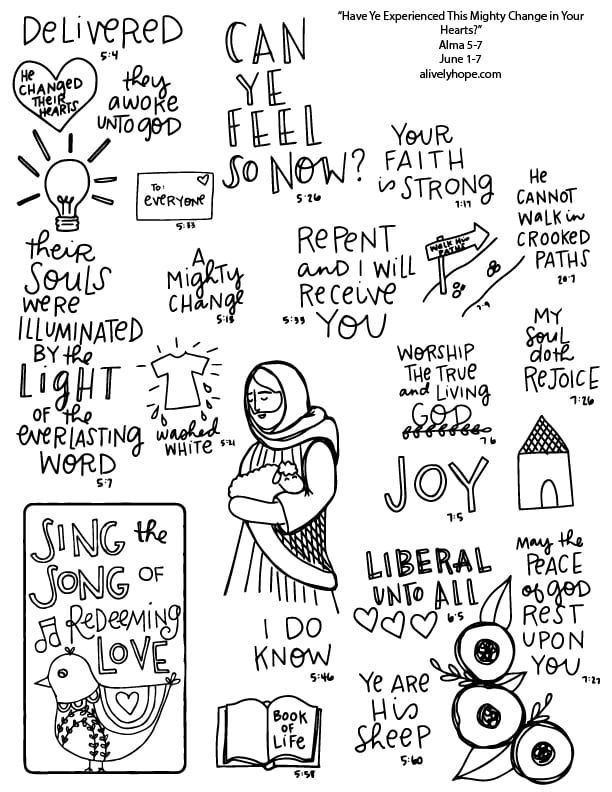 "Have Ye Experienced This Mighty Change in Your
Hearts?"
Alma 5-7
June 1-7
alivelyhope.com
DELIVERED
5:4
HE
CHANGED
THEIR
HEARTS
they
awoke
UNTO GOD
CAN
YE
FEEL
SO NOW?
5:26
YOUR
FAITH
is STRONG
7:17
HE
CANNOT
WALK in
CROOKED
PATHS
20:7
TO:
everyone
5:33
their
SOULS
WERE
ILLUMINATED
BY the
LIGHT
OF the
everLASTING
WORD
5:7
A
Mighty
CHANGE
5:13
REPENT
and I WILL
Receive
YOU
5:33
WALK His
PATHS
7:9
MY
Soul
doth
REJOICE
7:26
WORSHIP
THE TRUE
and LIVING
GOD
7:6
washed
WHITE
5:21
JOY
7:5
SING the
SONG OF
Redeeming
LOVE
LIBERAL
UNTO ALL
6:5
May the
PEACE
of GOD
REST
UPON
YOU
7:27
I DO
KNOW
5:46
BOOK
OF
LIFE
5:58
YE ARE
His
Sheep
5:60